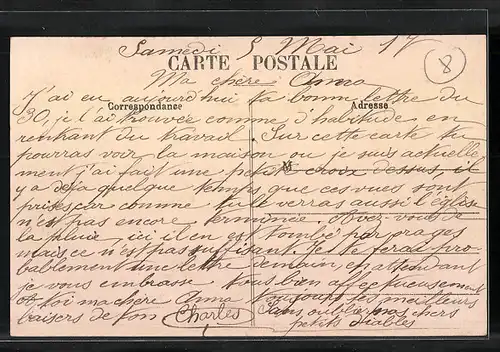 Samedi 5 Mai 17
8
CARTE POSTALE
Ma chère Anna
Correspondance
Adresse
J'ai eu aujourd'hui ta bonne lettre du
30, je l'ai trouvée comme d'habitude en
rentrant du travail Sur cette carte tu
pourras voir la maison ou je suis actuelle
M
ment j'ai fait une petite croix dessus, il
y a deja quelque temps que ces vues sont
prises, car comme tu le verras aussi l'église
n'est pas encore terminée. Avez-vous de
la pluie, ici il en est tombé par orages
mais ce n'est pas suffisant. Je te ferai pro
bablement une lettre demain, en attendant
je vous embrasse tous bien affectueusement
et toi ma chère Anna toujours les meilleurs
baisers de ton Charles
Sans oublier nos chers
petits diables